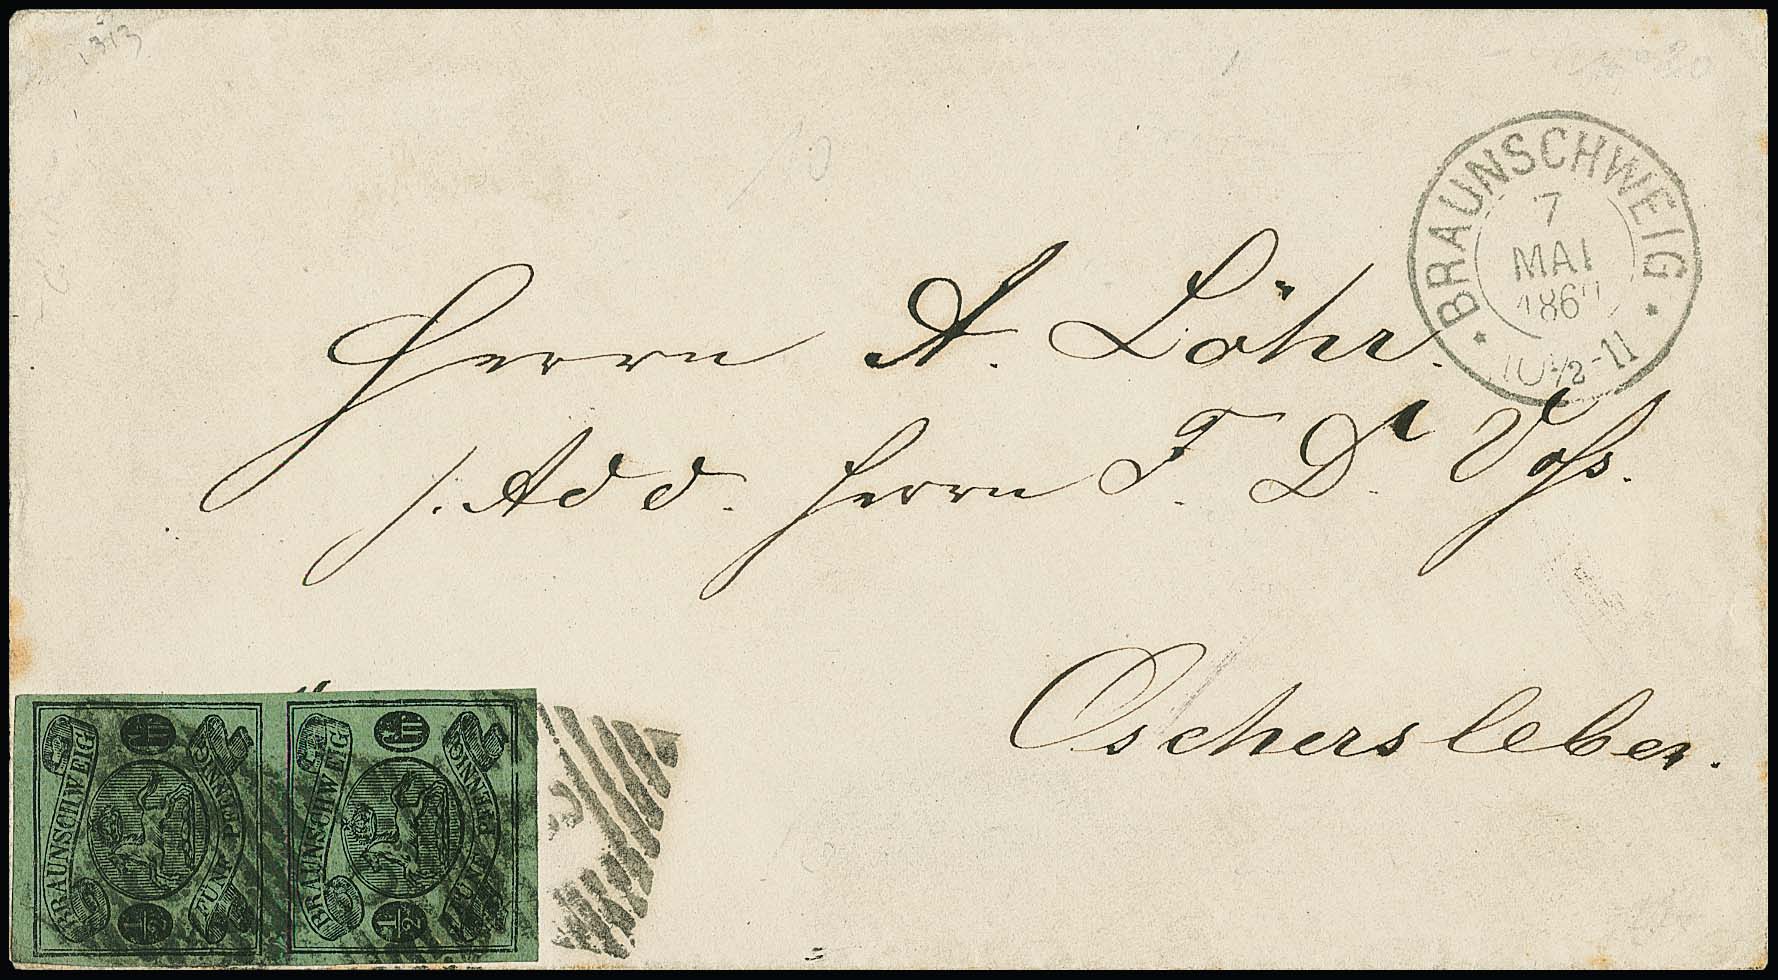 BRAUNSCHWEIG
7
MAI
186
10½-11
Herrn A. Löhr.
/. Add. Herrn F. Dr. Voss.
Oschersleben.
BRAUNSCHWEIG
FÜNF PFENNIG
½ Gr
BRAUNSCHWEIG
FÜNF PFENNIG
½ Gr